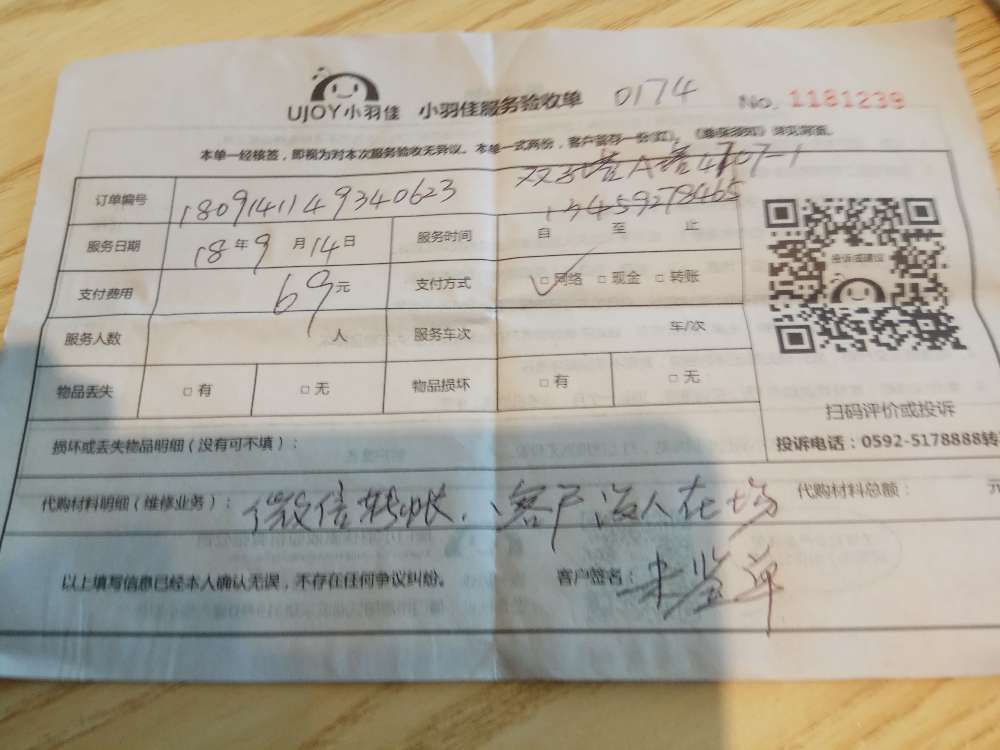 UJOY小羽佳 小羽佳服务验收单 0174 No. 1181239
本单一经核签，即视为对本次服务验收无异议。本单一式两份，客户留存一份(红)，《维保须知》详见背面。
双子塔A塔4707-1
订单编号 180914114 9340623 13459278465
服务日期 18年9月14日 服务时间 自 至 止
支付费用 69元 支付方式 ☑网络 □现金 □转账
服务人数 人 服务车次 车/次
物品丢失 □有 □无 物品损坏 □有 □无
投诉或建议
扫码评价或投诉
投诉电话：0592-5178888转
损坏或丢失物品明细（没有可不填）：
代购材料明细（维修业务）：微信转帐、客户没人在场 代购材料总额： 元
以上填写信息已经本人确认无误，不存在任何争议纠纷。 客户签名：未签单